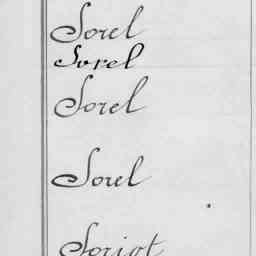 Sorel
Sorel
Sorel
Sorel
Soriot